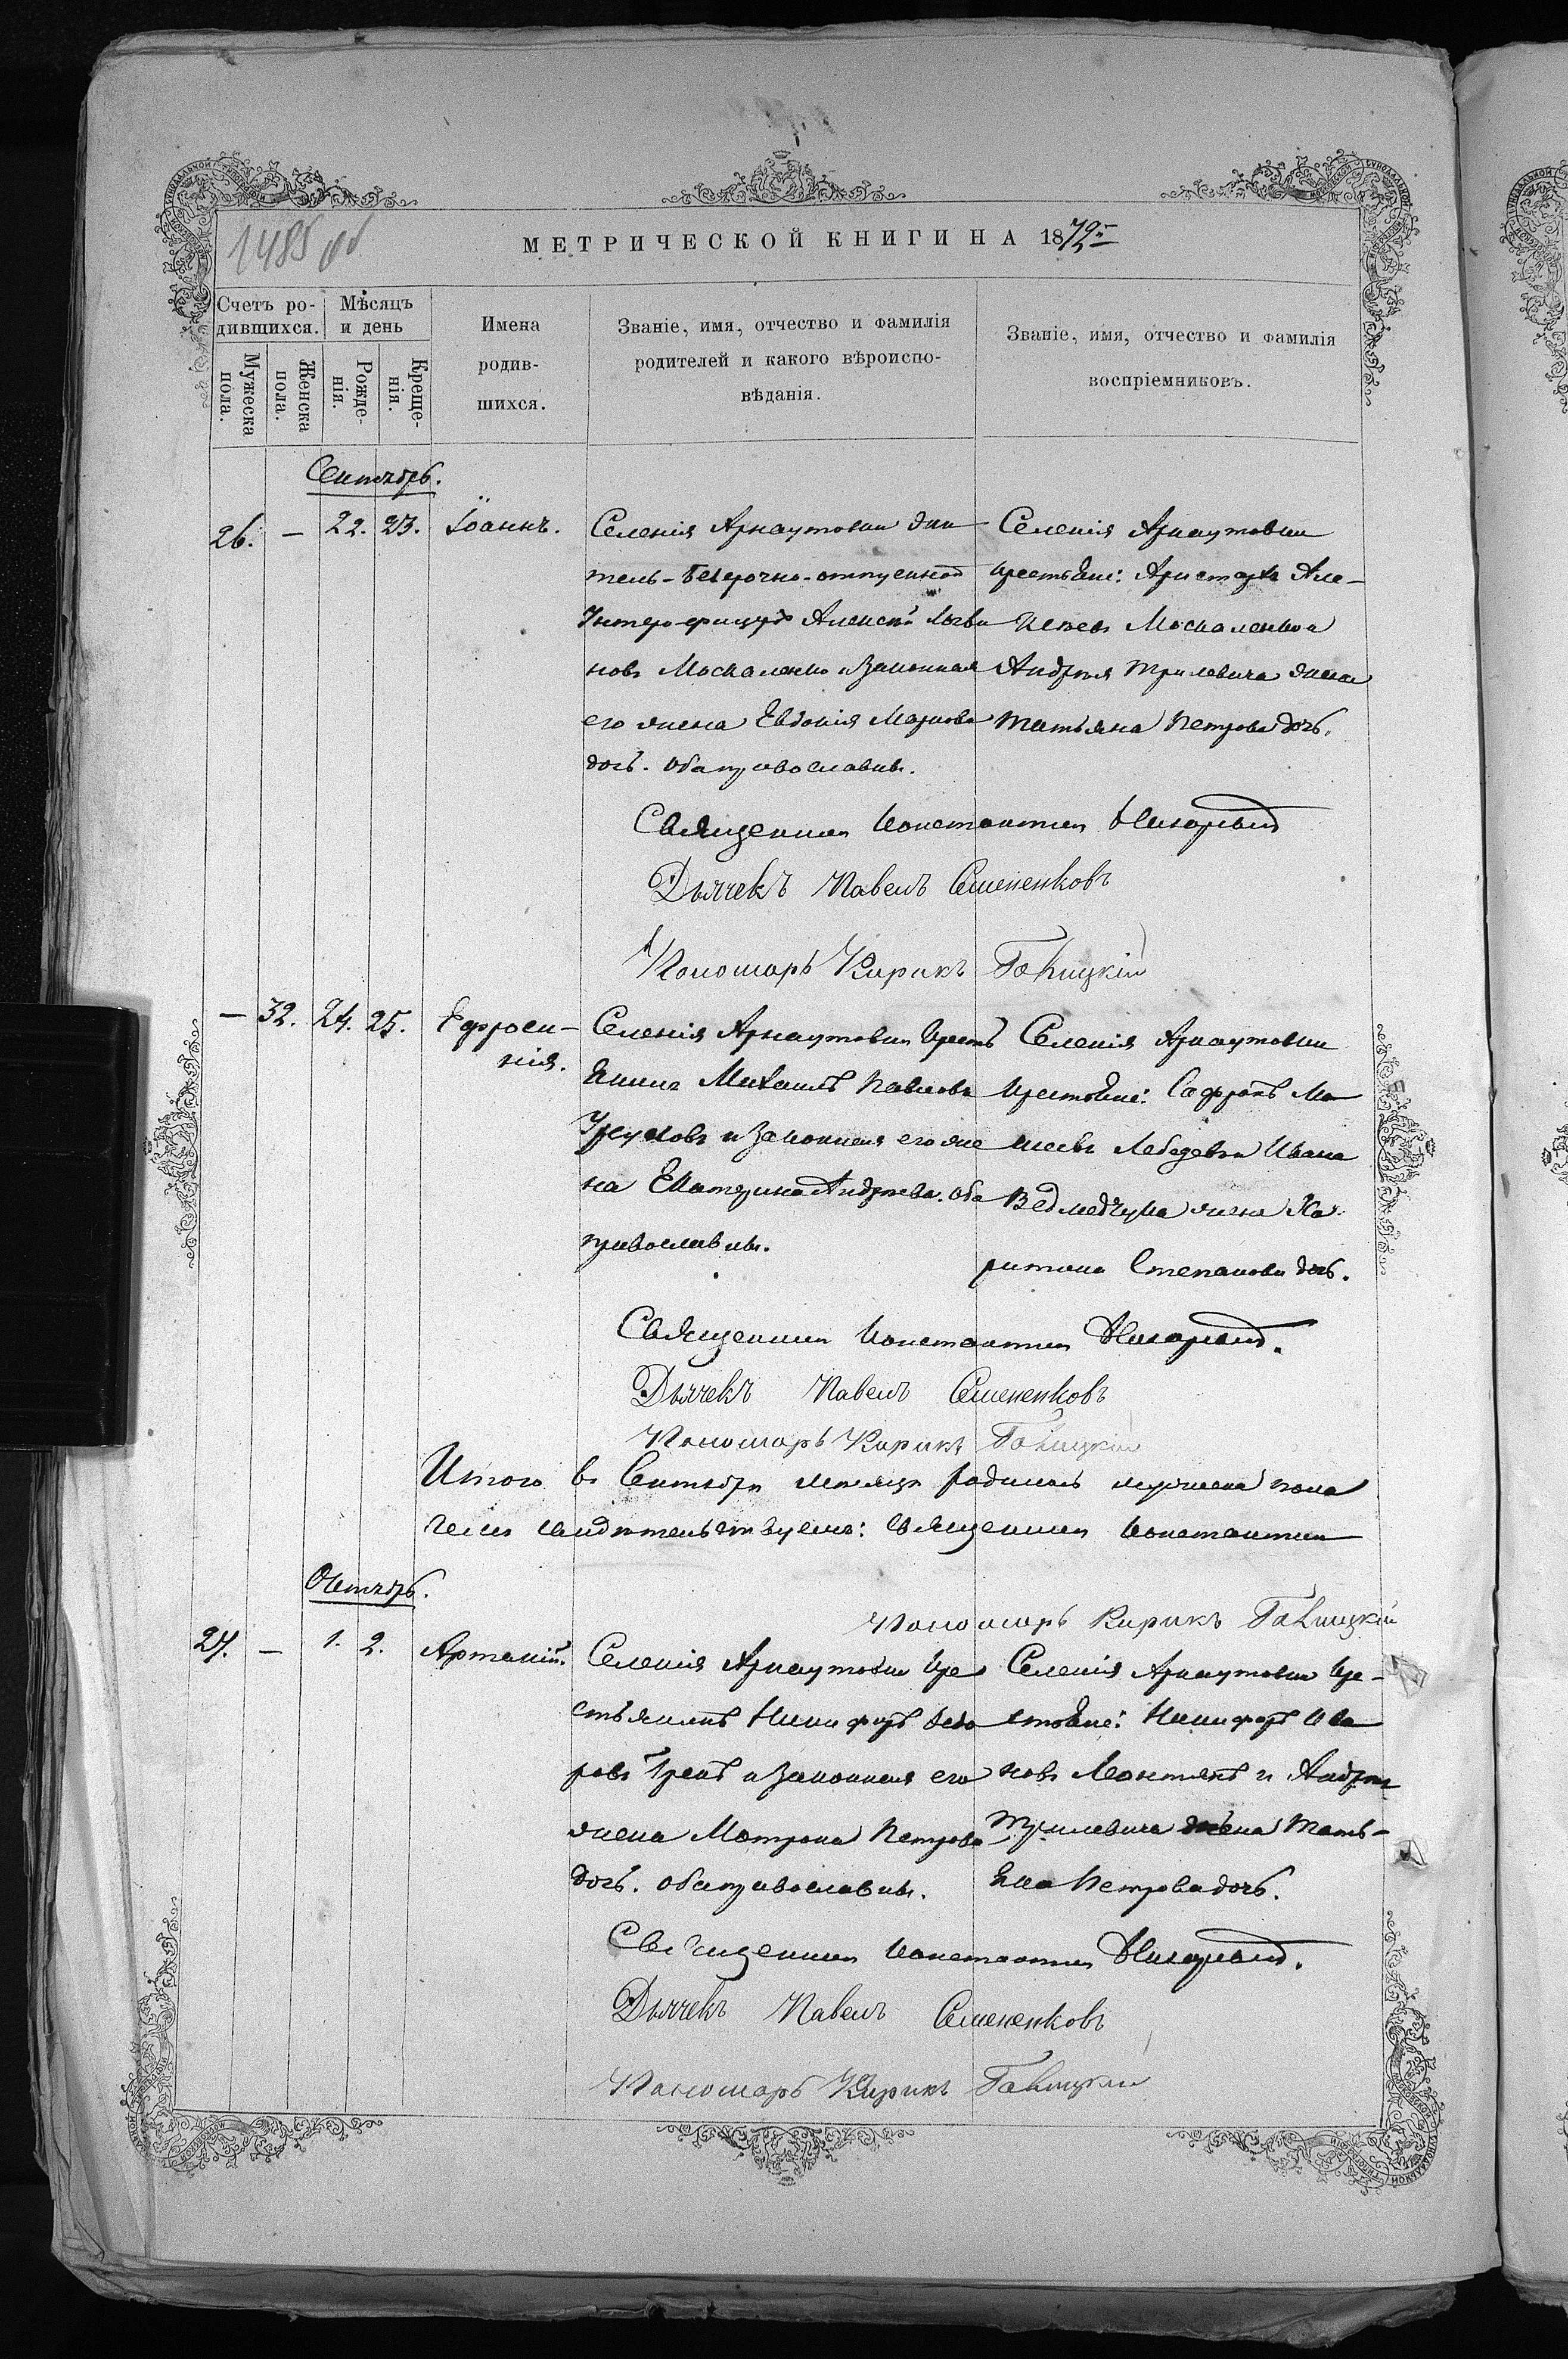 1485 об
МЕТРИЧЕСКОЙ КНИГИ НА 1872
Счетъ ро-
дившихся.
Мѣсяцъ
и день
Мужеска
пола.
Женска
пола.
Рожде-
нія.
Креще-
нія.
Имена
родив-
шихся.
Званіе, имя, отчество и фамилія
родителей и какого вѣроиспо-
вѣданія.
Званіе, имя, отчество и фамилія
воспріемниковъ.
Сентябрь.
26. — 22. 23. Іоаннъ.
Селенія Арнаутовки жи
тель-безсрочно-отпускной
Унтеръ-офицеръ Алексѣй
новъ Москаленко и Законная
его жена Евдокія Маркова
дочь. оба православны.
Селенія Арнаутовки
крестьяне: Аристархъ Але-
ксѣевъ Москаленко и
Андрея Трилевича жена
Татьяна Петрова дочь.
Священникъ Константинъ
Дьячекъ Павелъ Семененковъ
Пономарь Кирикъ Галицкій
— 32. 24. 25. Ефроси-
нія.
Селенія Арнаутовки Кресть
янинъ Михаилъ Павловъ
и Законная его же
на Екатерина Андреева. оба
православны.
Селенія Арнаутовки
Крестьяне: Сафронъ
Лебедевъ и Ивана
Ведмедчука жена Ха-
ритина Степанова дочь.
Священникъ Константинъ
Дьячекъ Павелъ Семененковъ
Пономарь Кирикъ Галицкій
Итого въ Сентябрѣ мѣсяцѣ родилось мужеска пола
чемъ свидѣтельствуемъ: Священникъ Константинъ
Пономарь Кирикъ Галицкій
Октябрь.
27. — 1. 2. Артемій.
Селенія Арнаутовки Кре
стьянинъ Никифоръ Федо
ровъ Грекъ и Законная его
жена Матрона Петрова
дочь. оба православны.
Селенія Арнаутовки Кре-
стьяне: Никифоръ Ива
новъ Леонтякъ и Андрея
Трилевича жена Тать-
яна Петрова дочь.
Священникъ Константинъ
Дьячекъ Павелъ Семененковъ
Пономарь Кирикъ Галицкій